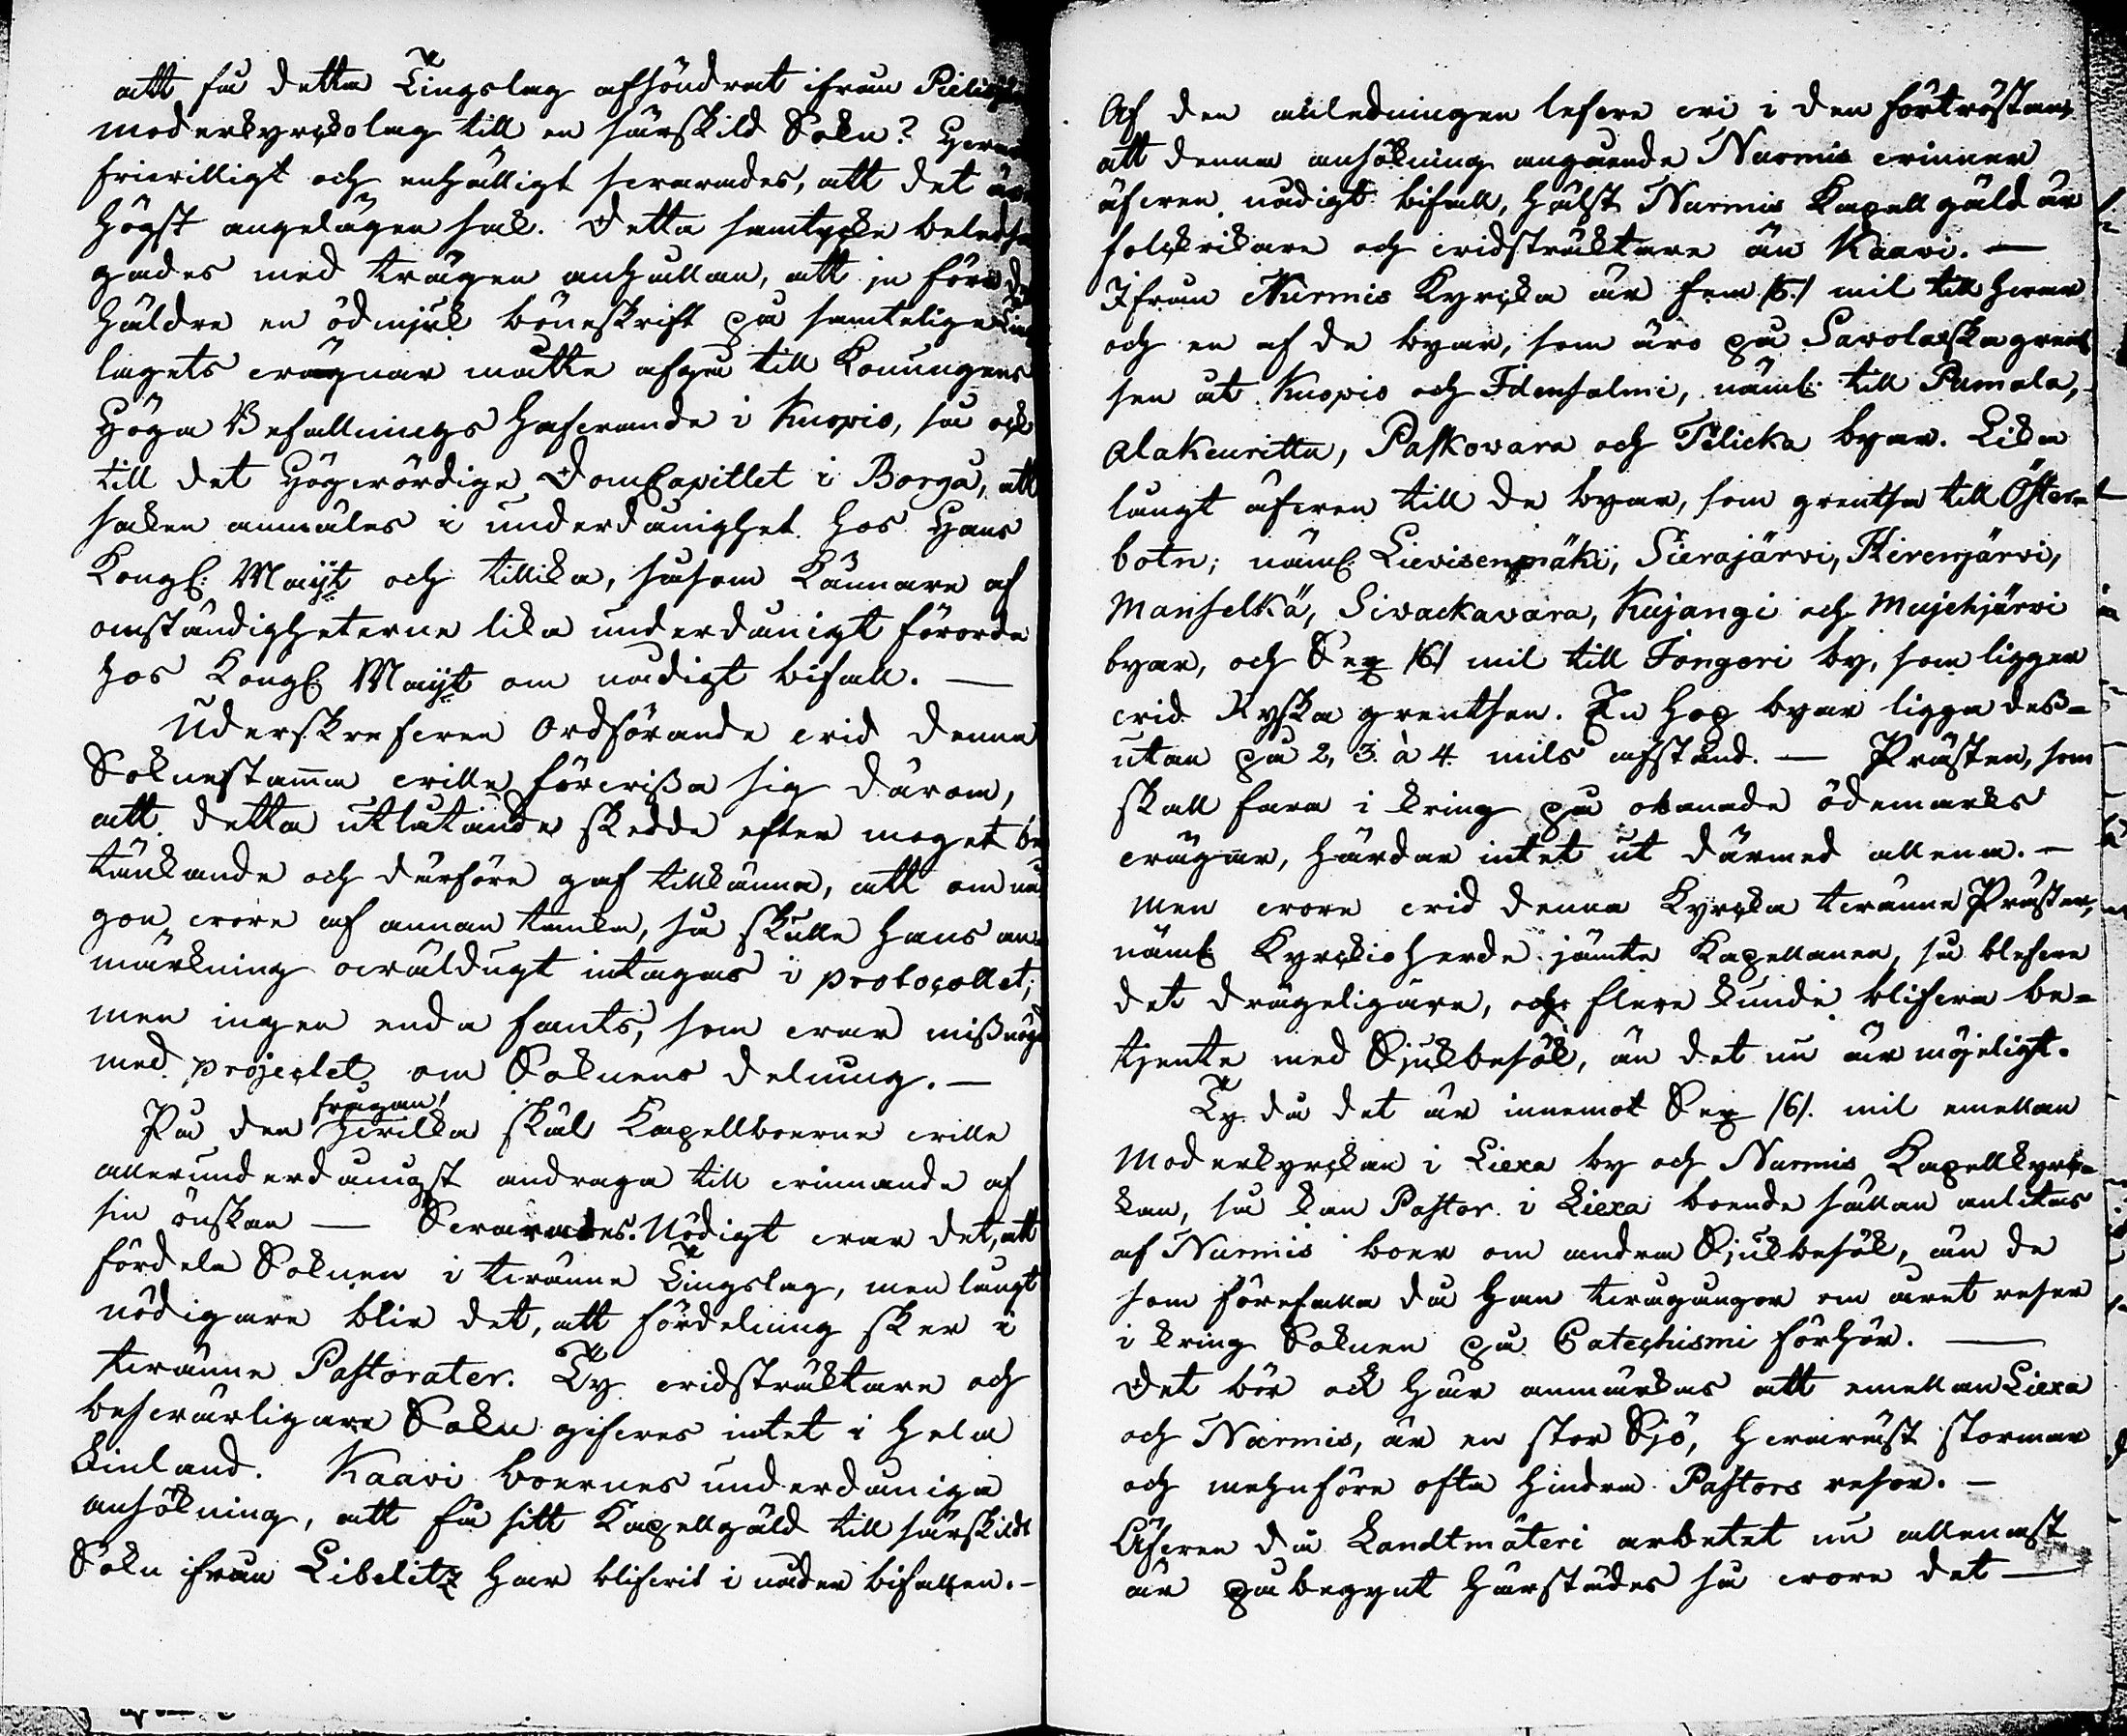 att få detta Tingslag afsöndrat ifrån Pielis
moderkyrckolag till en särskild Sokn?
friwilligt och enhälligt swarades, att det är
högst angelägen sak. Detta samtycke beledsa
gades med trägen anhållan, att ju före de
häldre en ödmjuk böneskrift på samtelige Ting
lagets wägnar måtte afgå till Konungens
Höga Befallnings Hafwande i Kuopio, så ock
till det Högwördige DomCapitlet i Borgå, att
saken anmäles i underdånighet hos Hans
Kongl: Maijt och tillika, såsom kännare af
omständigheterne lika underdånigt förorda
hos Kongl: Maijt om nådigt bifall. —
Uderskrefwen Ordförande wid denne
Soknestama wille förwißa sig därom,
att detta utlåtande skedde efter moget be
tänkande och därföre gaf tillkänna, att om nå
gon wore af annan tanka, så skulle hans an
märkning owäldugt intagas i protocollet;
men ingen enda fants, som war mißnögd
med projectet om Soknens delning. —
På den frågan! hwilka skäl Kapellboerne wille
allerunderdånigst andraga till winnande af
sin önskan — Swarades. Nödigt war det, att
fördela Soknen i twänne Tingslag, men långt
nödigare blir det, att fördelning sker i
twänne Pastorater. Ty widsträktare och
beswärligare Sokn gifwes intet i hela
Finland. Kaavi boernes underdåniga
ansökning, att få sitt Kapellgäld till särskildt
Sokn ifrån Libelitz har blifwit i nåder bifallen. —
Af den anledningen lefwe wi i den förtröstan,
att denna ansökning angående Nurmis winner
äfwen nådigt bifall, hälst Nurmis Kapell gäld är
folckrikare och widsträktare än Kaavi. —
Ifrån Nurmis Kyrcka är fem /5./ mil till hwar
och en af de byar, som äro på Savolaxska grent
sen åt Kuopio och Idensalmi, näml: till Pumala,
Alakeuritta, Paskovara och Telicka byar. Lika
långt äfwen till de byar, som grentsa till Öster-
botn; näml: Lievisenmäki, Sierajärvi, Hirenjärvi,
Manselkä, Sivackavara, Kajangi och Mujehjärvi
byar, och Sex /6./ mil till Jongeri by, som ligger
wid Ryska grentsen. En hop byar ligga deß-
utan på 2, 3 à 4 mils afstånd. — Prästen, som
skall fara i kring på obanade ödemarks
wägar, härdar intet ut därmed allena. —
men wore wid denna Kyrcka twänne Präster,
näml: Kyrckioherde jämte Kapellanen, så blefwe
det drägeligare, och flere kunde blifwa be-
tjente med Sjukbesök, än det nu är möjeligt.
Ty då det är innemot Sex /6/. mil emellan
Moderkyrckan i Liexa by och Nurmis Kapellkyrc-
kan, så kan Pastor i Liexa boende sällan anlitas
af Nurmis boer om andra Sjukbesök, än de
som förefalla då han twågångor om året reser
i kring Soknen på Catechismi förhör. —
Det bör ock här anmärkas att emellan Liexa
och Nurmis, är en stor Sjö, hwarest stormar
och mehnföre ofta hindra Pastors resor. —
Äfwen då Landtmäteri arbetet nu allenast
är påbegynt härstädes så wore det —